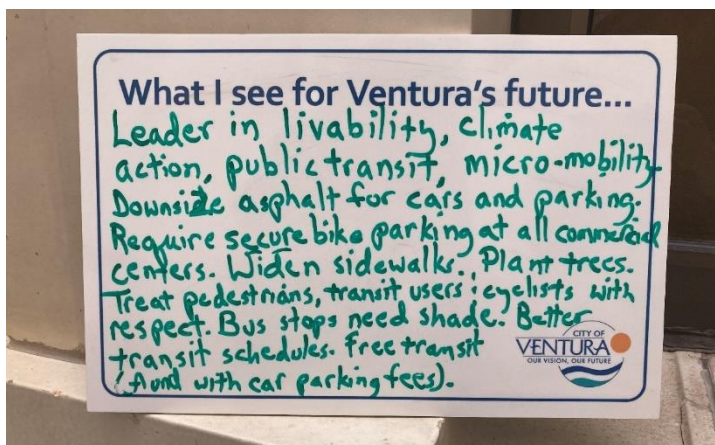 What I see for Ventura's future...
Leader in livability, climate
action, public transit, micro-mobility
Downsize asphalt for cars and parking.
Require secure bike parking at all commercial
centers. Widen sidewalks. Plant trees.
Treat pedestrians, transit users & cyclists with
respect. Bus stops need shade. Better
transit schedules. Free transit
(fund with car parking fees).
CITY OF
VENTURA
OUR VISION, OUR FUTURE